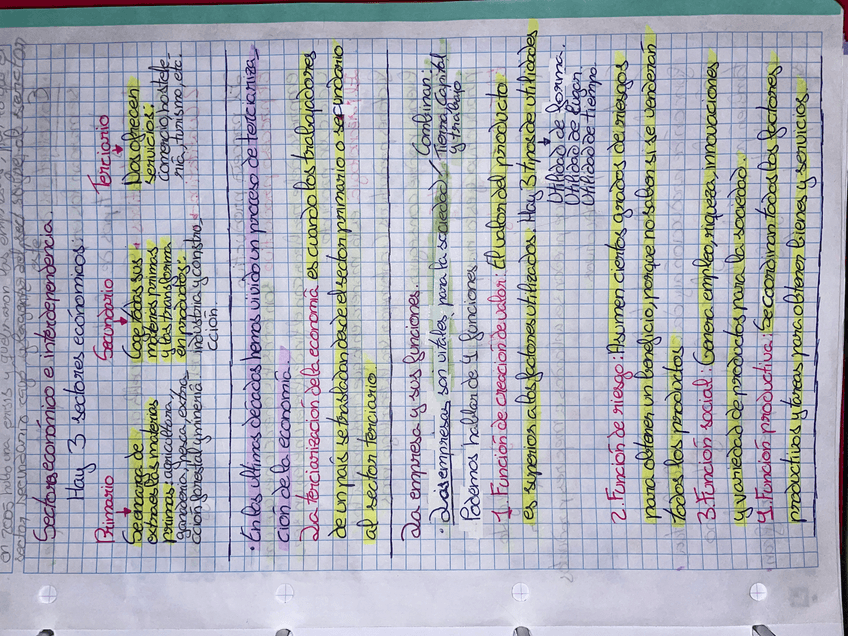 en 2008 hubo una crisis y quebraron las empresas
sector secundario cayó y
Sectores económico e interdependencia.
Hay 3 sectores económicos:
Primario
Se encarga de
extraer las materias
primas: agricultura
ganadería, pesca, extra
cción forestal y minería.
Secundario
Coge todas sus
materias primas
y las transforma
en productos:
industria y constru_
cción.
Terciario
Dos ofrecen
servicios:
comercio, hostele_
ría, turismo, etc.
· En las últimas décadas hemos vivido un proceso de terciariza_
ción de la economía.
La terciarización de la economía es cuando los trabajadores
de un país se trasladan desde el sector primario o secundario
al sector terciario.
La empresa y sus funciones.
· Las empresas son vitales para la sociedad
Combinan:
Tierra, Capital
y trabajo
Podemos hablar de 4 funciones
1. Función de creación de valor: El valor del producto
es superior a los factores utilizados: Hay 3 tipos de utilidades
Utilidad de forma.
Utilidad de lugar.
Utilidad de tiempo.
2. Función de riesgo: Asumen ciertos grados de riesgos
para obtener un beneficio, porque no saben si se venderán
todos los productos
3. Función social: Genera empleo, riqueza, innovaciones
y variedad de productos para la sociedad.
4. Función productiva: Se coordinan todos los factores
productivos y tareas para obtener bienes y servicios